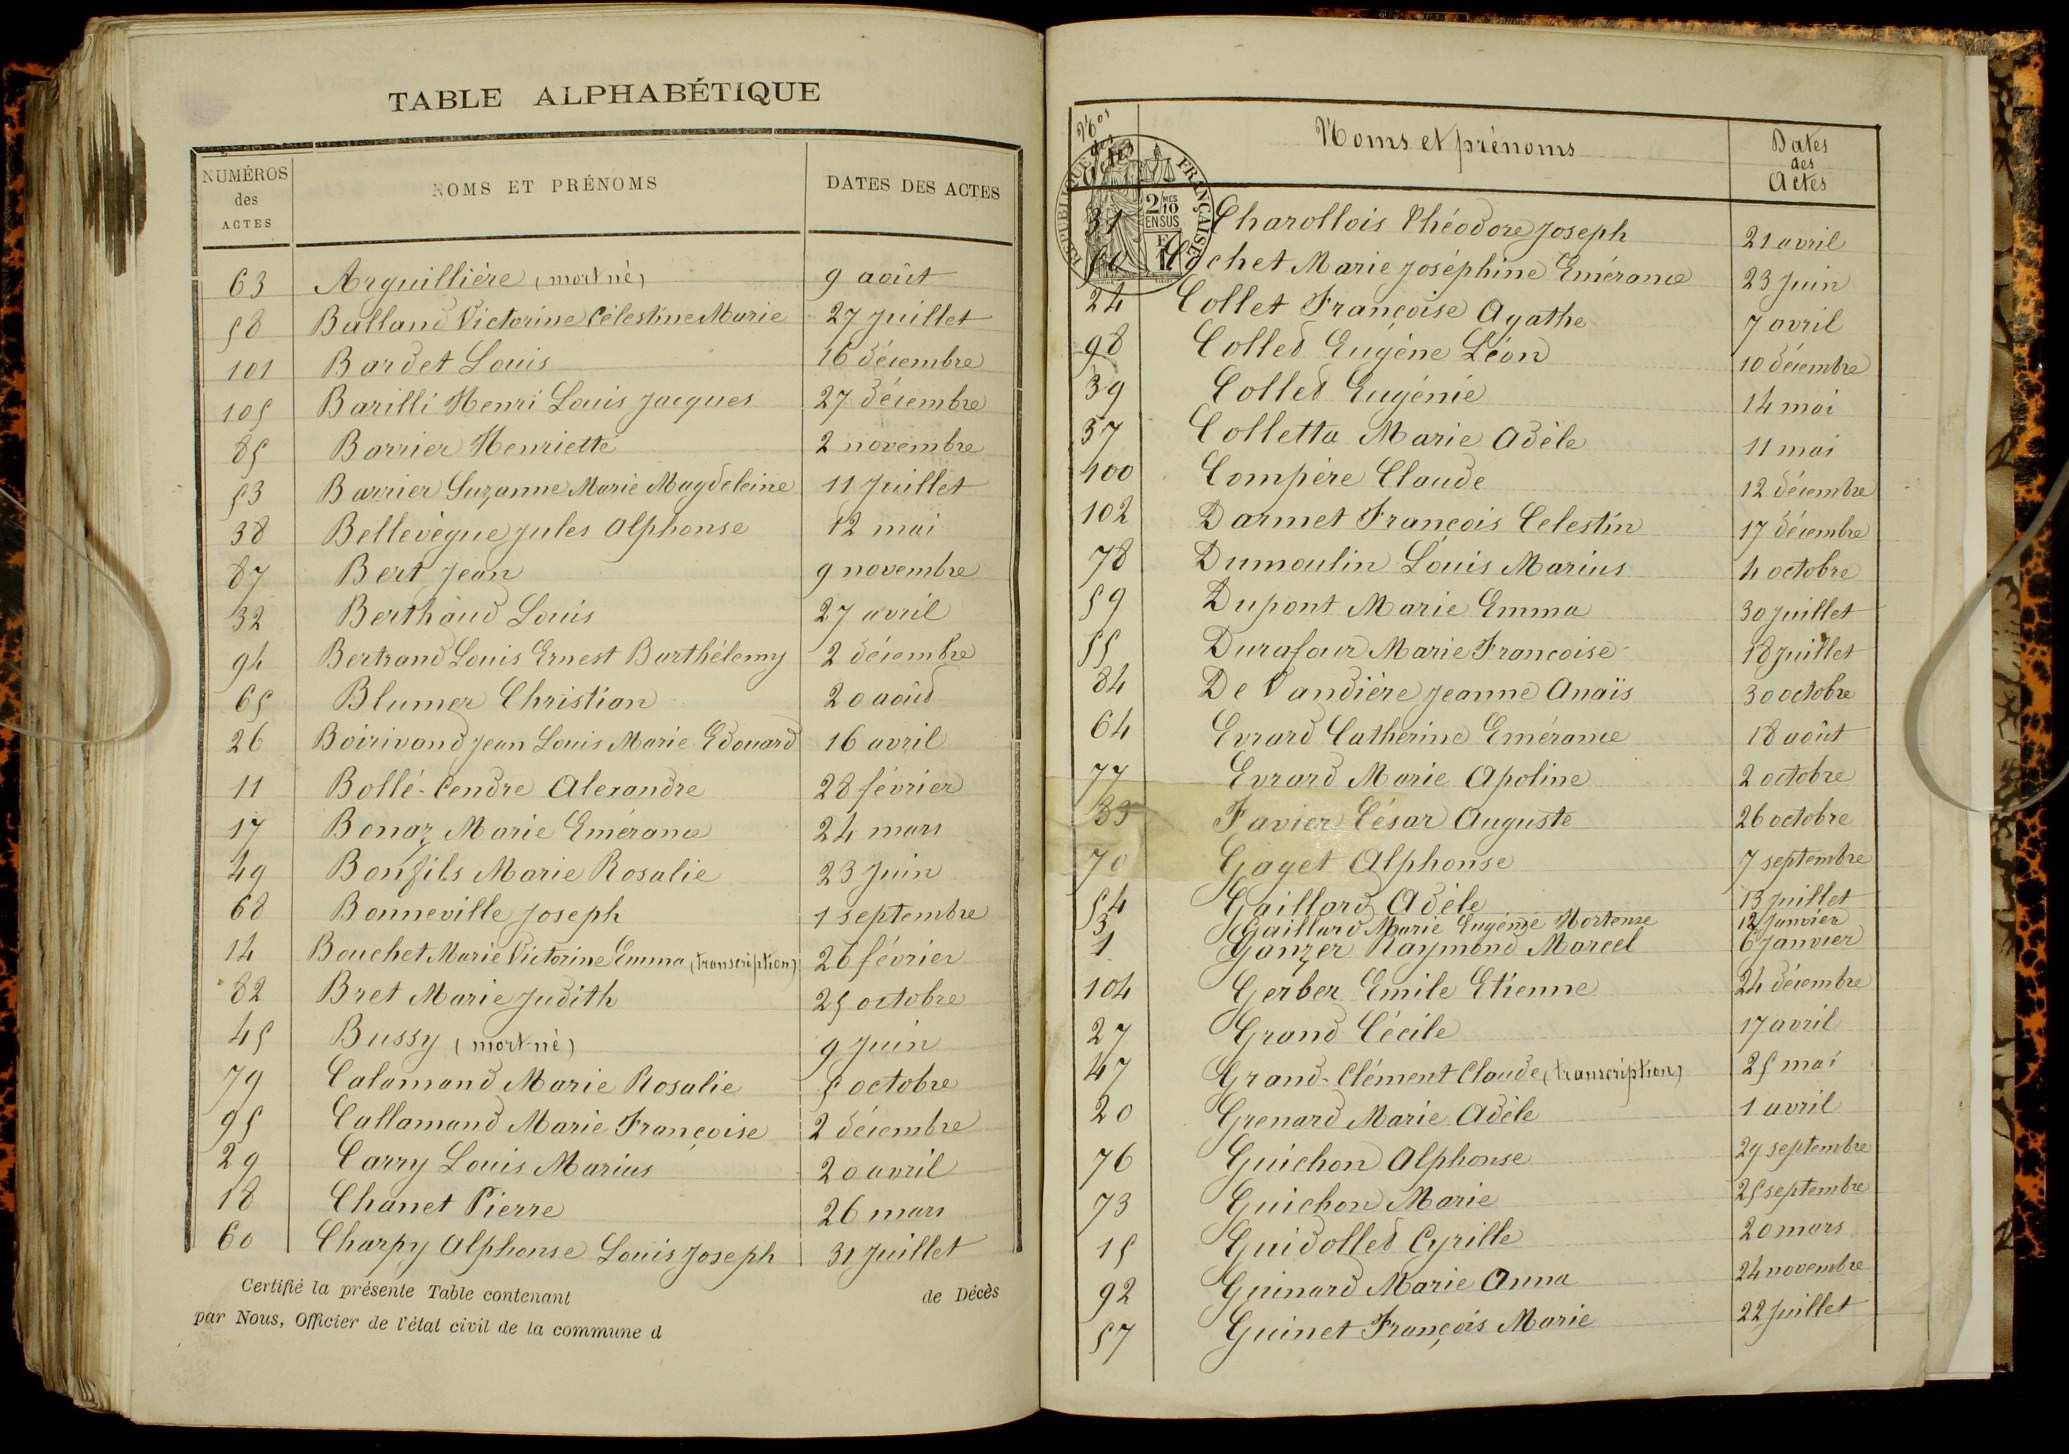 TABLE ALPHABÉTIQUE
NUMÉROS des ACTES NOMS ET PRÉNOMS DATES DES ACTES
63 Arguillière (mort né) 9 août
58 Balland Victorine Célestine Marie 27 Juillet
101 Bardet Louis 16 décembre
105 Barilli Henri Louis Jacques 27 décembre
85 Barrier Henriette 2 novembre
53 Barrier Suzanne Marie Magdeleine 11 Juillet
38 Bellevègue Jules Alphonse 12 mai
87 Bert Jean 9 novembre
32 Berthaud Louis 27 avril
94 Bertrand Louis Ernest Barthélemy 2 décembre
65 Blumer Christian 20 août
26 Boirivand Jean Louis Marie Edouard 16 avril
11 Bollé-Cendre Alexandre 28 février
17 Bonaz Marie Emérance 24 mars
49 Bonfils Marie Rosalie 23 Juin
68 Bonneville Joseph 1 septembre
14 Bouchet Marie Victorine Emma (transcription) 26 février
82 Bret Marie Judith 25 octobre
45 Bussy (mort-né) 9 Juin
79 Calamand Marie Rosalie 5 octobre
95 Callamand Marie Françoise 2 décembre
29 Carry Louis Marius 20 avril
18 Chanet Pierre 26 mars
60 Charpy Alphonse Louis Joseph 31 Juillet
Certifié la présente Table contenant de Décès
par Nous, Officier de l'état civil de la commune d
Nos des Actes Noms et prénoms Dates des Actes
RÉPUBLIQUE FRANÇAISE
2/10 MES
EN SUS
31 Charollois Théodore Joseph 21 avril
Cochet Marie Joséphine Emérance 23 Juin
24 Collet Françoise Agathe 7 avril
98 Collet Eugène Léon 10 décembre
39 Collet Eugénie 14 mai
37 Colletta Marie Adèle 11 mai
100 Compère Claude 12 décembre
102 Darmet François Celestin 17 décembre
78 Dumoulin Louis Marius 4 octobre
59 Dupont Marie Emma 30 Juillet
55 Durafour Marie Françoise 18 Juillet
84 De Vandière Jeanne Anaïs 30 octobre
64 Evrard Catherine Emérance 18 août
77 Evrard Marie Apoline 2 octobre
Favier César Auguste 26 octobre
70 Gaget Alphonse 7 septembre
54 Gaillard Adèle 13 Juillet
3 Gaillard Marie Eugénie Hortense 12 Janvier
1 Ganzer Raymond Marcel 6 Janvier
104 Gerber Emile Etienne 24 décembre
27 Grand Cécile 17 avril
47 Grand-Clément Claude (transcription) 25 mai
20 Grenard Marie Adèle 1 avril
76 Guichon Alphonse 29 septembre
73 Guichon Marie 25 septembre
15 Guidollet Cyrille 20 mars
92 Guinard Marie Anna 24 novembre
57 Guinet François Marie 22 Juillet